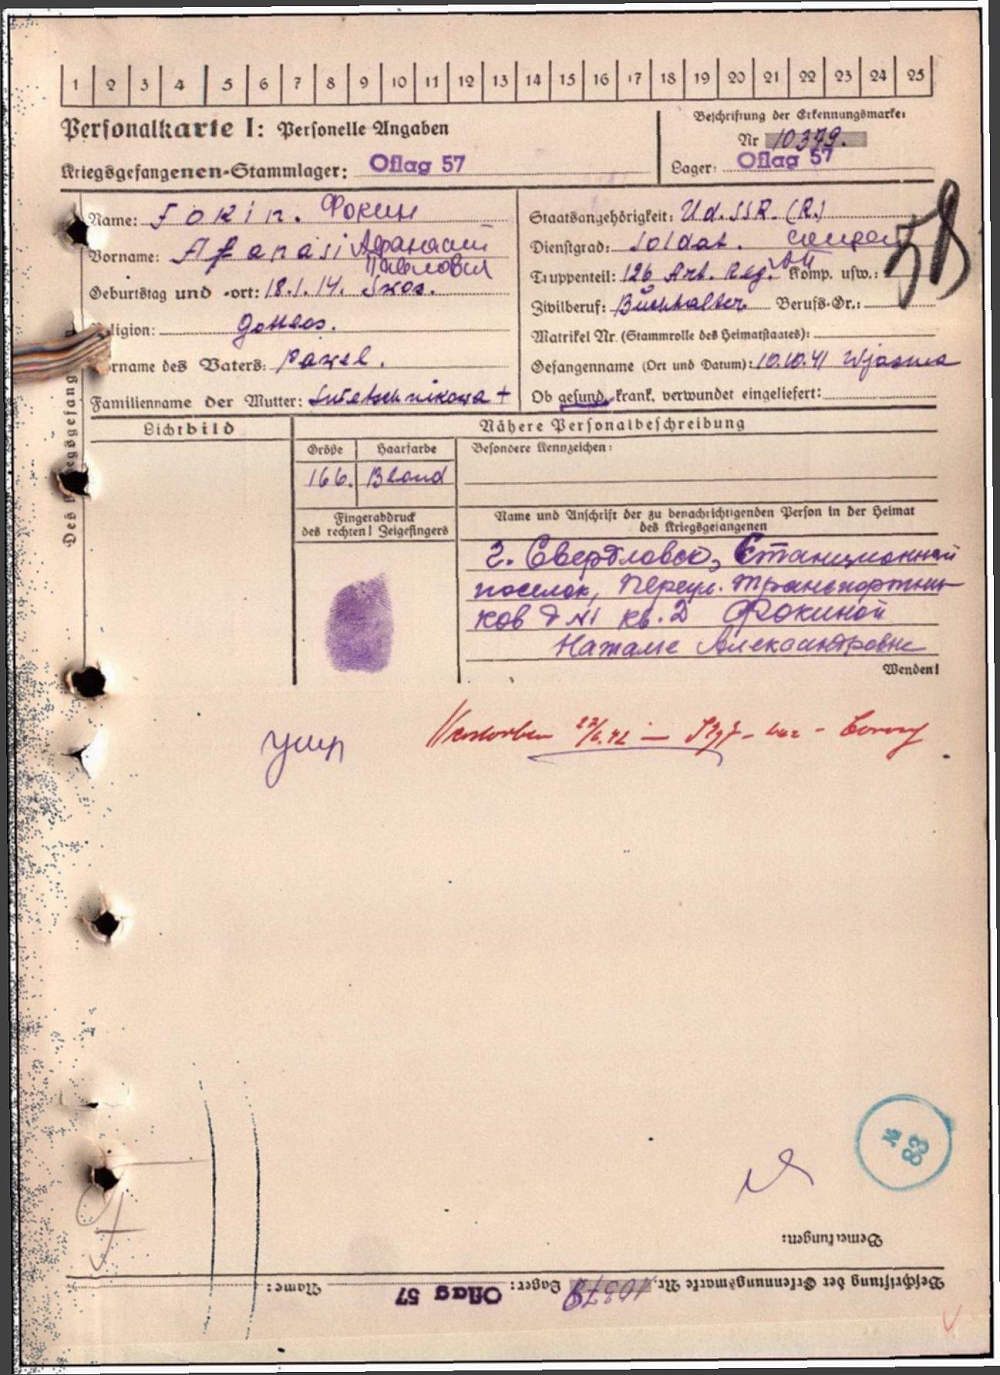 1 2 3 4 5 6 7 8 9 10 11 12 13 14 15 16 17 18 19 20 21 22 23 24 25
Personalkarte I: Personelle Angaben
Kriegsgefangenen-Stammlager: Oflag 57
Beschriftung der Erkennungsmarke:
Nr 10379.
Lager: Oflag 57
Name: Fokin. Фокин
Vorname: Afanasi Афанасий
Павлович
Geburtstag und -ort: 18.1.14.
ligion: Gottlos.
rname des Vaters: Pawel.
Familienname der Mutter:
Staatsangehörigkeit: Ud.SSR. (R.)
Dienstgrad: Soldat.
Truppenteil: 126 Art. Reg. Komp. usw.:
Zivilberuf: Buchhalter Berufs-Gr.:
Matrikel Nr. (Stammrolle des Heimatstaates):
Gefangenname (Ort und Datum): 10.10.41 Wjasma
Ob gesund, krank, verwundet eingeliefert:
58
Des
egsgefang
Lichtbild
Nähere Personalbeschreibung
Größe Haarfarbe Besondere Kennzeichen:
166. Blond
Fingerabdruck
des rechten! Zeigefingers
Name und Anschrift der zu benachrichtigenden Person in der Heimat
des Kriegsgefangenen
г. Свердловск, Станционный
поселок, Переул. Транспортни-
ков д №1 кв. 2 Фокиной
Наталье Александровне
Wenden!
умер
Verstorben
№ 83
Bemerkungen:
Beschriftung der Erkennungsmarke Nr. 10379 Lager: Oflag 57 Name: